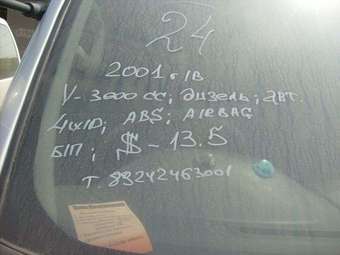 24
2001 г/в
V-3000 cc; дизель; авт.
4WD; ABS; AIRBAG
Б/П; $-13.5
т. 83242463001